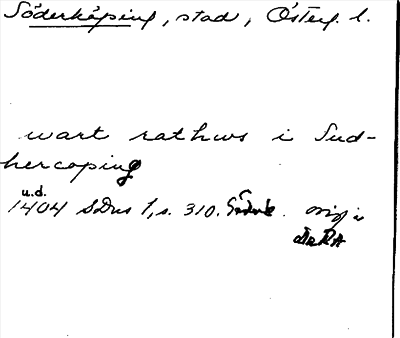 Söderköping, stad, Österg. l.
wart rathws i Sud-
hercoping
u.d.
1404 SDns 1, s. 310. Söderk. orig i
RA